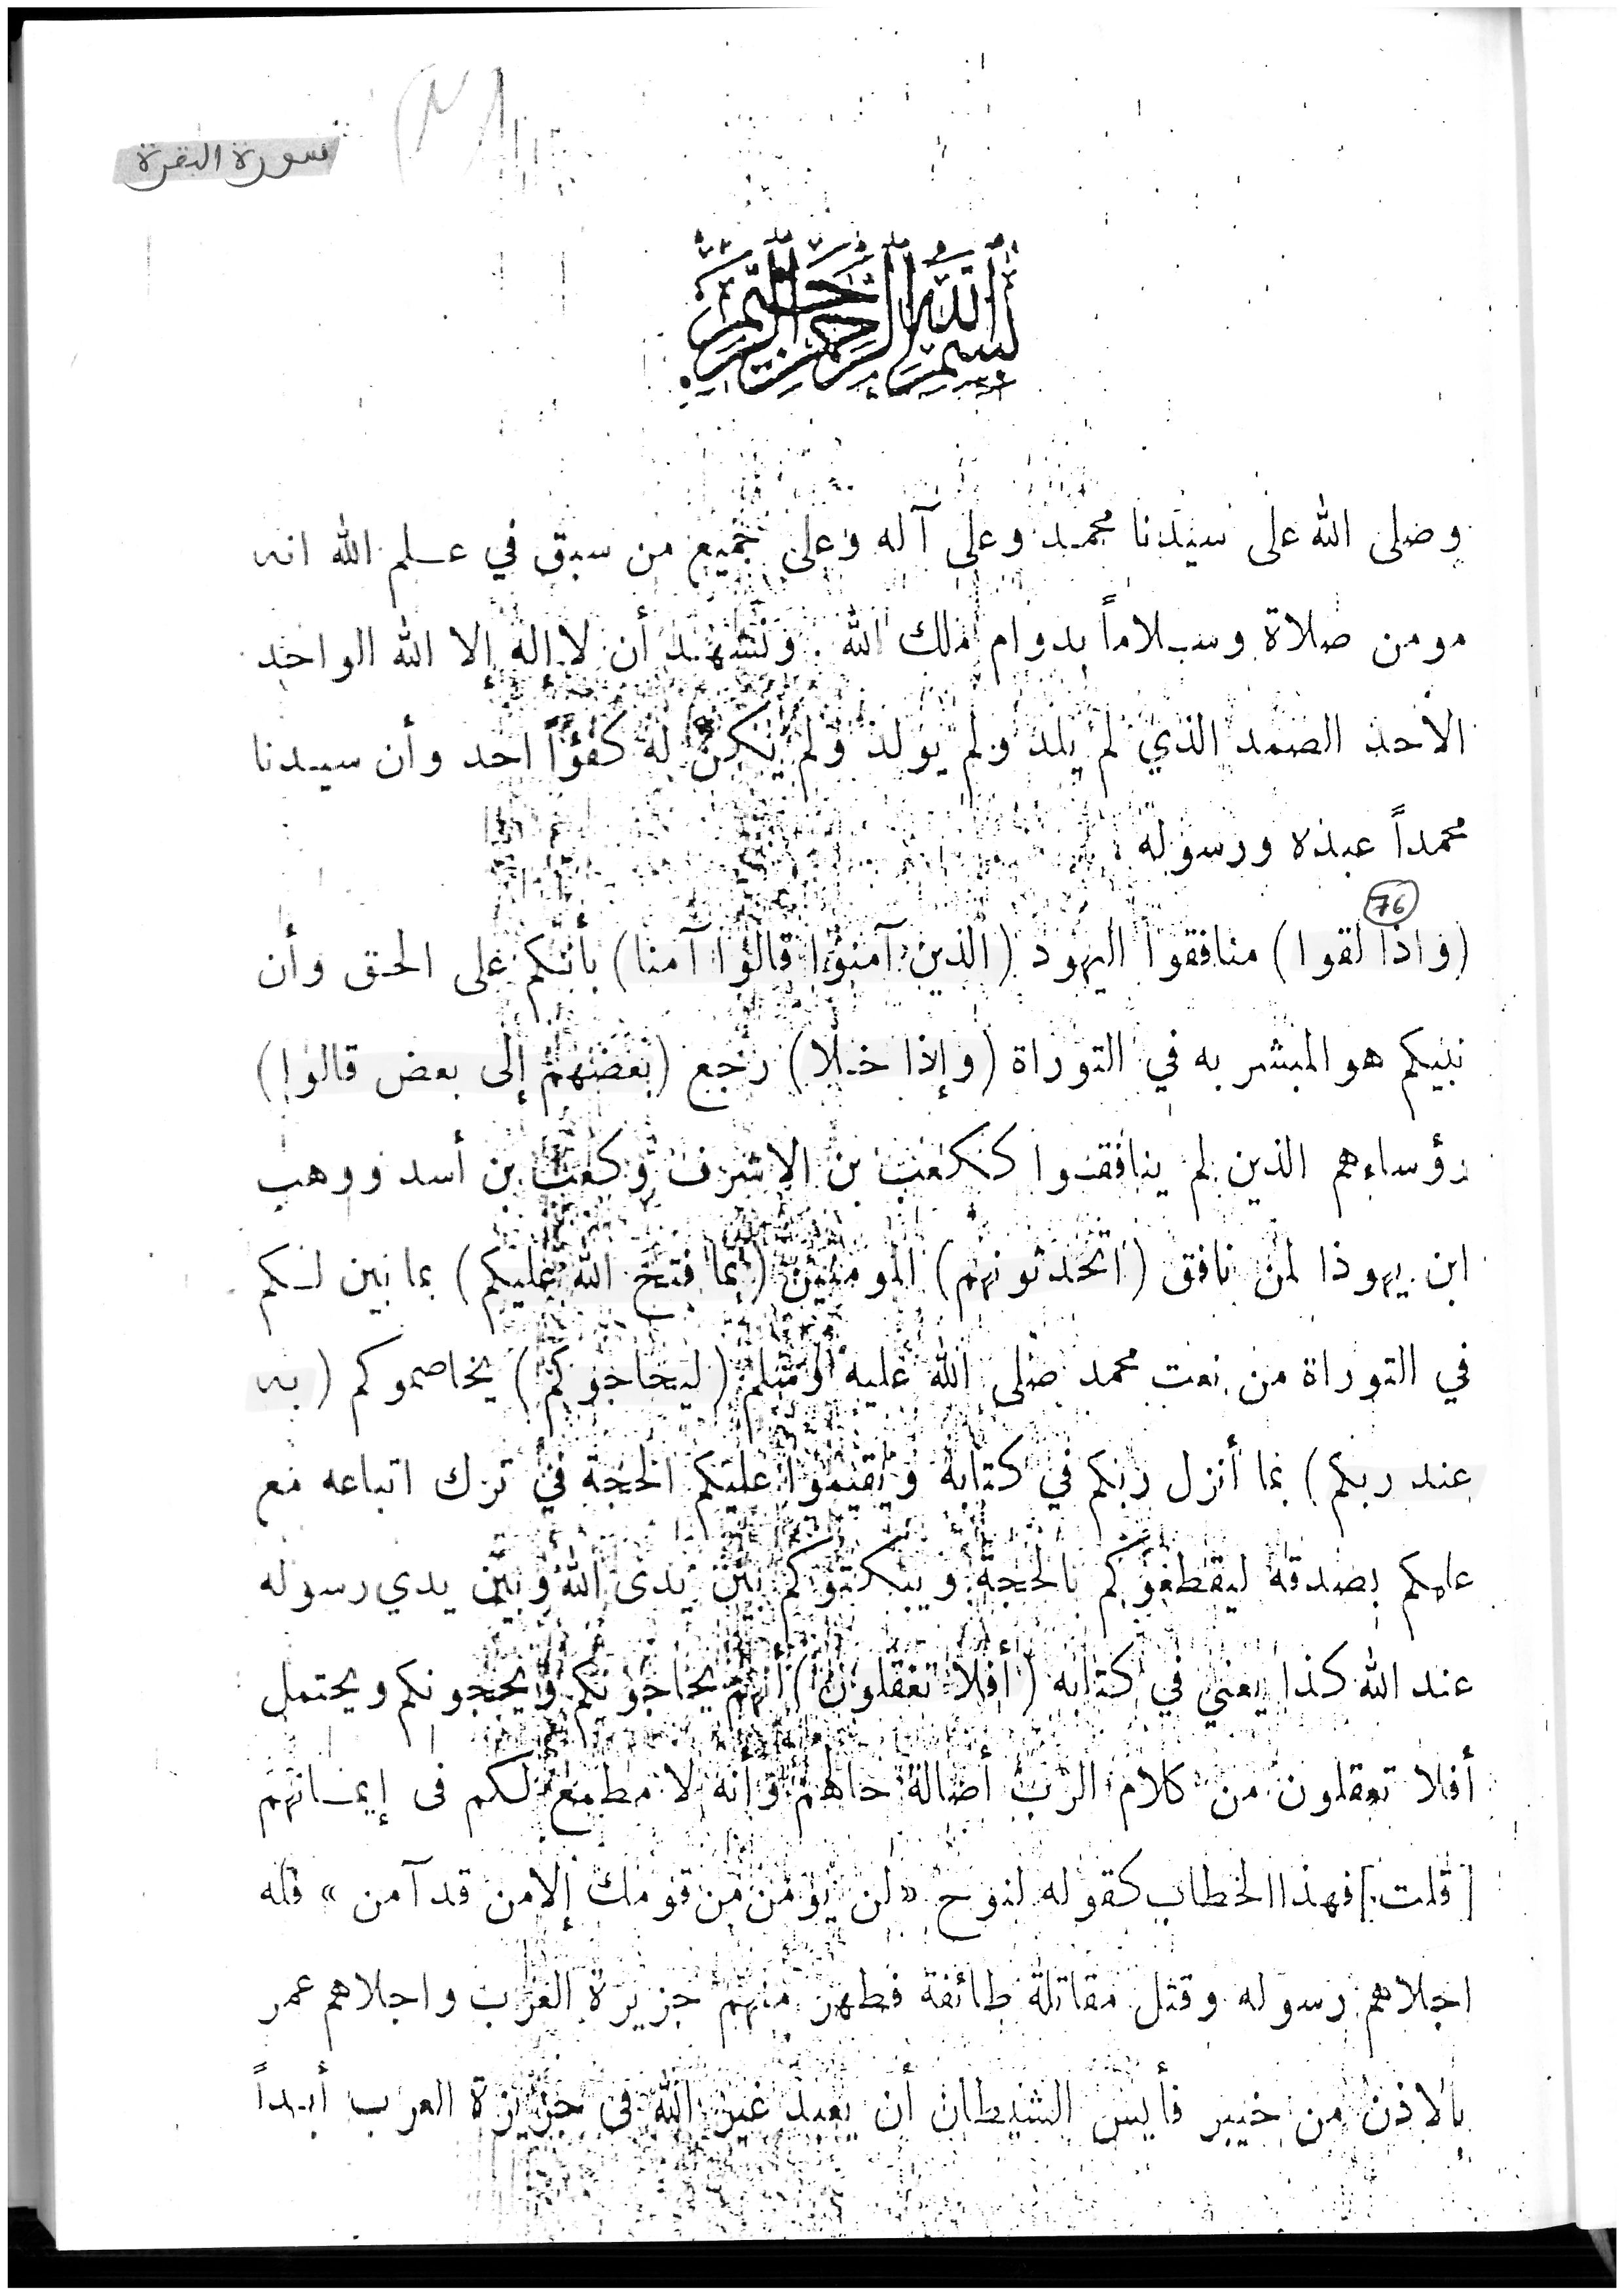 سورة البقرة
بسم الله الرحمن الرحيم
وصلى الله على سيدنا محمد وعلى آله وعلى جميع من سبق في علم الله انه
مومن صلاة وسلاماً بدوام ملك الله . ونشهد أن لا إله إلا الله الواحد
الأحد الصمد الذي لم يلد ولم يولد ولم يكن له كفؤاً احد وأن سيدنا
محمداً عبده ورسوله .
76
(واذا لقوا) منافقوا اليهود (الذين آمنوا قالوا آمنا) بأنكم على الحق وأن
نبيكم هو المبشر به في التوراة (وإذا خلا) رجع (بعضهم إلى بعض قالوا)
رؤساءهم الذين لم ينافقوا ككعب بن الاشرف وكعب بن أسد ووهب
ابن يهوذا لمن نافق (اتحدثونهم) المومنين (بما فتح الله عليكم) بما بين لكم
في التوراة من نعت محمد صلى الله عليه وسلم (ليحاجوكم) يخاصموكم (به
عند ربكم) بما أنزل ربكم في كتابه ويقيموا عليكم الحجة في ترك اتباعه مع
علمكم بصدقه ليقطعوكم بالحجة ويبكتوكم بين يدى الله وبين يدي رسوله
عند الله كذا يعني في كتابه (أفلا تعقلون) أنهم يحاجونكم ويحجونكم ويحتمل
أفلا تعقلون من كلام الرب أصالة حالهم وأنه لا مطمع لكم فى إيمانهم
[قلت] فهذا الخطاب كقوله لنوح «لن يؤمن من قومك إلا من قد آمن» فله
اجلاهم رسوله وقتل مقاتلة طائفة فطهر منهم جزيرة العرب واجلاهم عمر
بالاذن من خيبر فأيس الشيطان أن يعبد غير الله فى جزيرة العرب أبداً